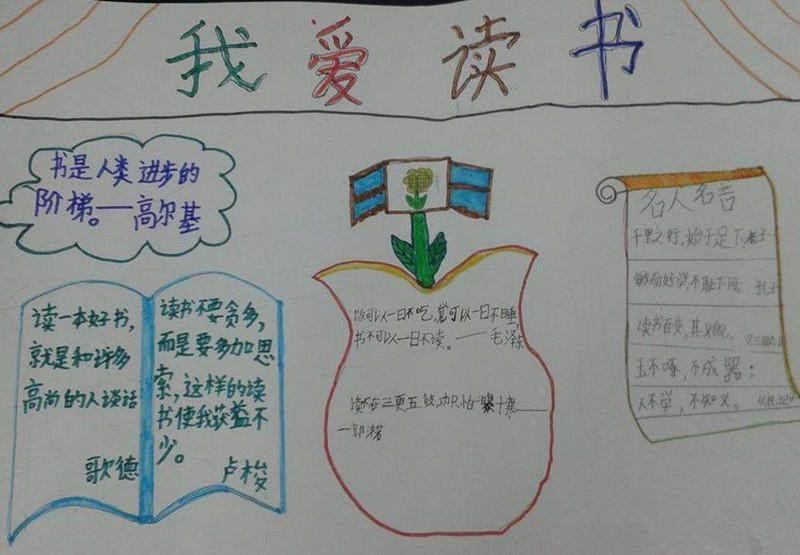 我爱读书
书是人类进步的
阶梯。——高尔基
读一本好书,
就是和许多
高尚的人谈话
歌德
读书不要贪多,
而是要多加思
索,这样的读
书使我获益不
少。
卢梭
饭可以一日不吃,觉可以一日不睡,
书不可以一日不读。——毛泽东
读不在三更五鼓,功只怕一曝十寒——
名人名言
千里之行,始于足下,老子
敏而好学,不耻下问 孔子
读书百变,其义
玉不啄,不成器;
人不学,不知义。